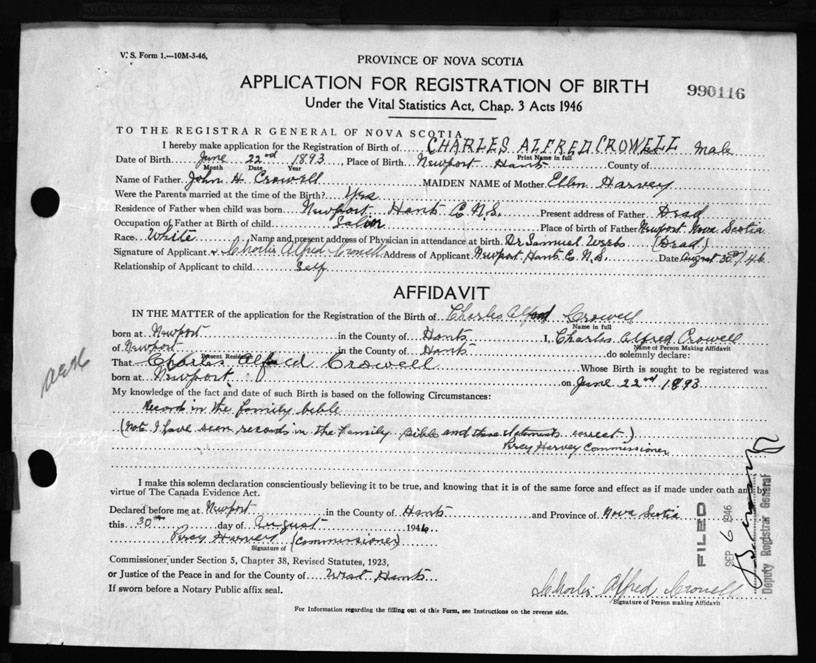 V. S. Form 1.—10M-3-46,
PROVINCE OF NOVA SCOTIA
APPLICATION FOR REGISTRATION OF BIRTH
990116
Under the Vital Statistics Act, Chap. 3 Acts 1946
TO THE REGISTRAR GENERAL OF NOVA SCOTIA
I hereby make application for the Registration of Birth of CHARLES ALFRED CROWELL Male
Print Name in full
Date of Birth June 22nd 1893, Place of Birth Newport Hants County of
Month Date Year
Name of Father John H. Crowell MAIDEN NAME of Mother Ellen Harvey
Were the Parents married at the time of the Birth? Yes
Residence of Father when child was born Newport Hants Co N.S. Present address of Father Dead
Occupation of Father at Birth of child Sailor Place of birth of Father Newport Nova Scotia
Race White Name and present address of Physician in attendance at birth Dr Samuel Webb (Dead)
Signature of Applicant Charles Alfred Crowell Address of Applicant Newport Hants Co. N.S. Date August 30th/46
Relationship of Applicant to child Self
AFFIDAVIT
IN THE MATTER of the application for the Registration of the Birth of Charles Alfred Crowell
Name in full
born at Newport in the County of Hants I, Charles Alfred Crowell
of Newport in the County of Hants do solemnly declare:
Present Residence Name of Person Making Affidavit
That Charles Alfred Crowell Whose Birth is sought to be registered was
born at Newport on June 22nd 1893
My knowledge of the fact and date of such Birth is based on the following Circumstances:
Record in the family bible
(Note I have seen records in the Family Bible and these statements correct)
Percy Harvey Commissioner
I make this solemn declaration conscientiously believing it to be true, and knowing that it is of the same force and effect as if made under oath and by
virtue of The Canada Evidence Act.
Declared before me at Newport in the County of Hants and Province of Nova Scotia
this 30th day of August 1946
Percy Harvey (Commissioner)
Signature of
Commissioner under Section 5, Chapter 38, Revised Statutes, 1923,
or Justice of the Peace in and for the County of West Hants
If sworn before a Notary Public affix seal.
Charles Alfred Crowell
Signature of Person making Affidavit
For Information regarding the filling out of this Form, see Instructions on the reverse side.
FILED
SEP 6 1946
Deputy Registrar General